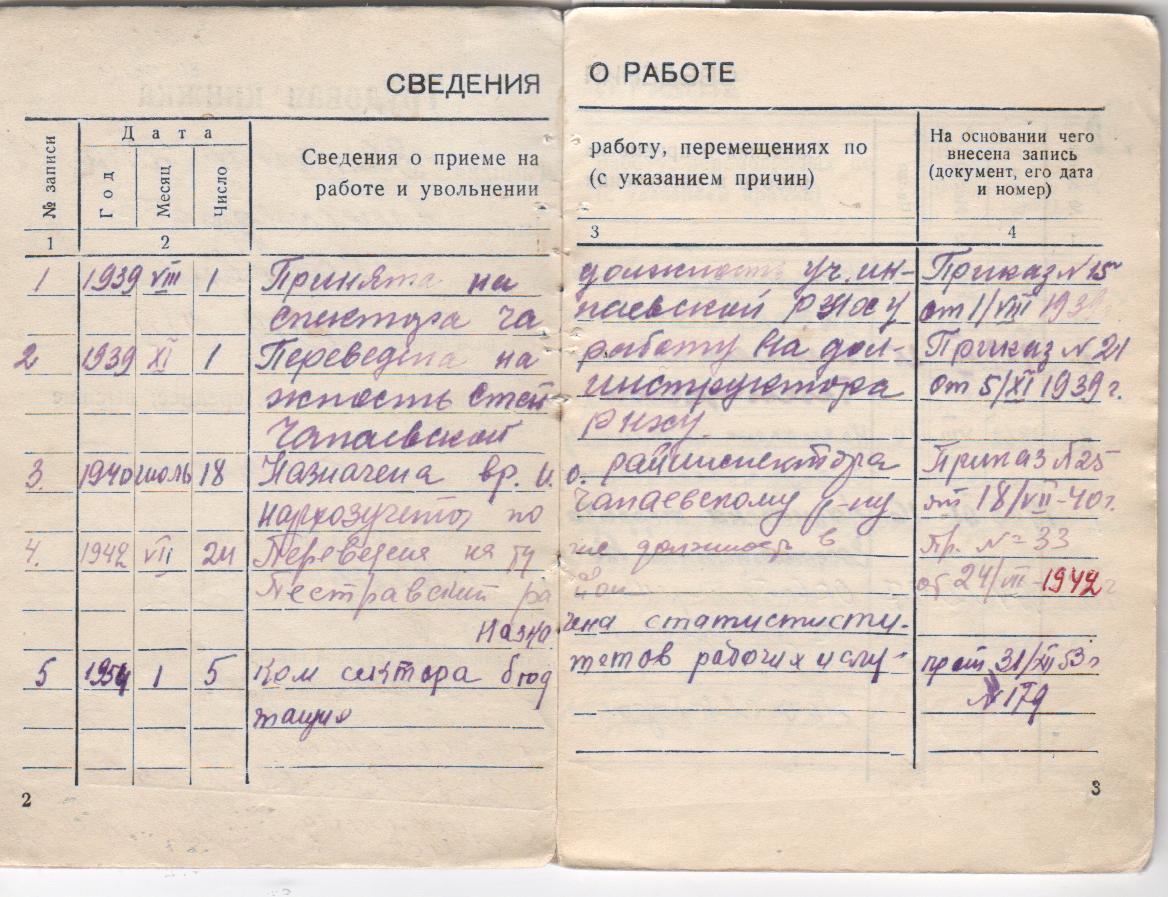 СВЕДЕНИЯ О РАБОТЕ
№ записи
Дата
Год
Месяц
Число
Сведения о приеме на работу, перемещениях по
работе и увольнении (с указанием причин)
На основании чего
внесена запись
(документ, его дата
и номер)
1 2 3 4
1 1939 VIII 1 Принята на должность уч. ин- Приказ №15
спектора Чапаевской РЗНОСУ от 1/VIII 193
2 1939 XI 1 Переведена на работу на дол- Приказ №21
жность инструктора от 5/XI 1939 г.
Чапаевской РНХУ.
3. 1940 июль 18 Назначена вр. и. о. райинспектора Приказ №25
нархозучета, по Чапаевскому р-ну от 18/VII-40 г.
4. 1942 VII 24 Переведена на ту же должность в Пр. № 33
Пестравский район от 24/VII-1942 г
Назначена статистисти-
5 1954 1 5 ком сектора бюджетов рабочих и слу- прик 31/XII 53 г
№ 179
2
3